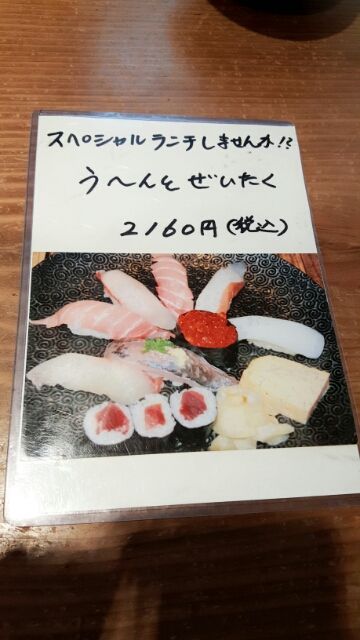 スペシャルランチしませんか!?
う〜んとぜいたく
2160円(税込)